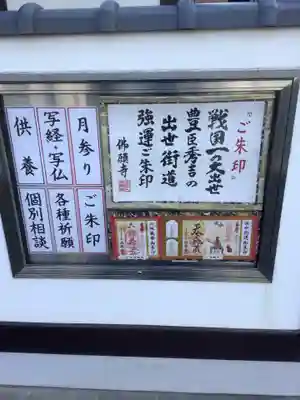 『ご朱印』
戦国一の大出世
豊臣秀吉の
出世街道
強運ご朱印
佛願寺
月参り
写経・写仏
供養
ご朱印
各種祈願
個別相談